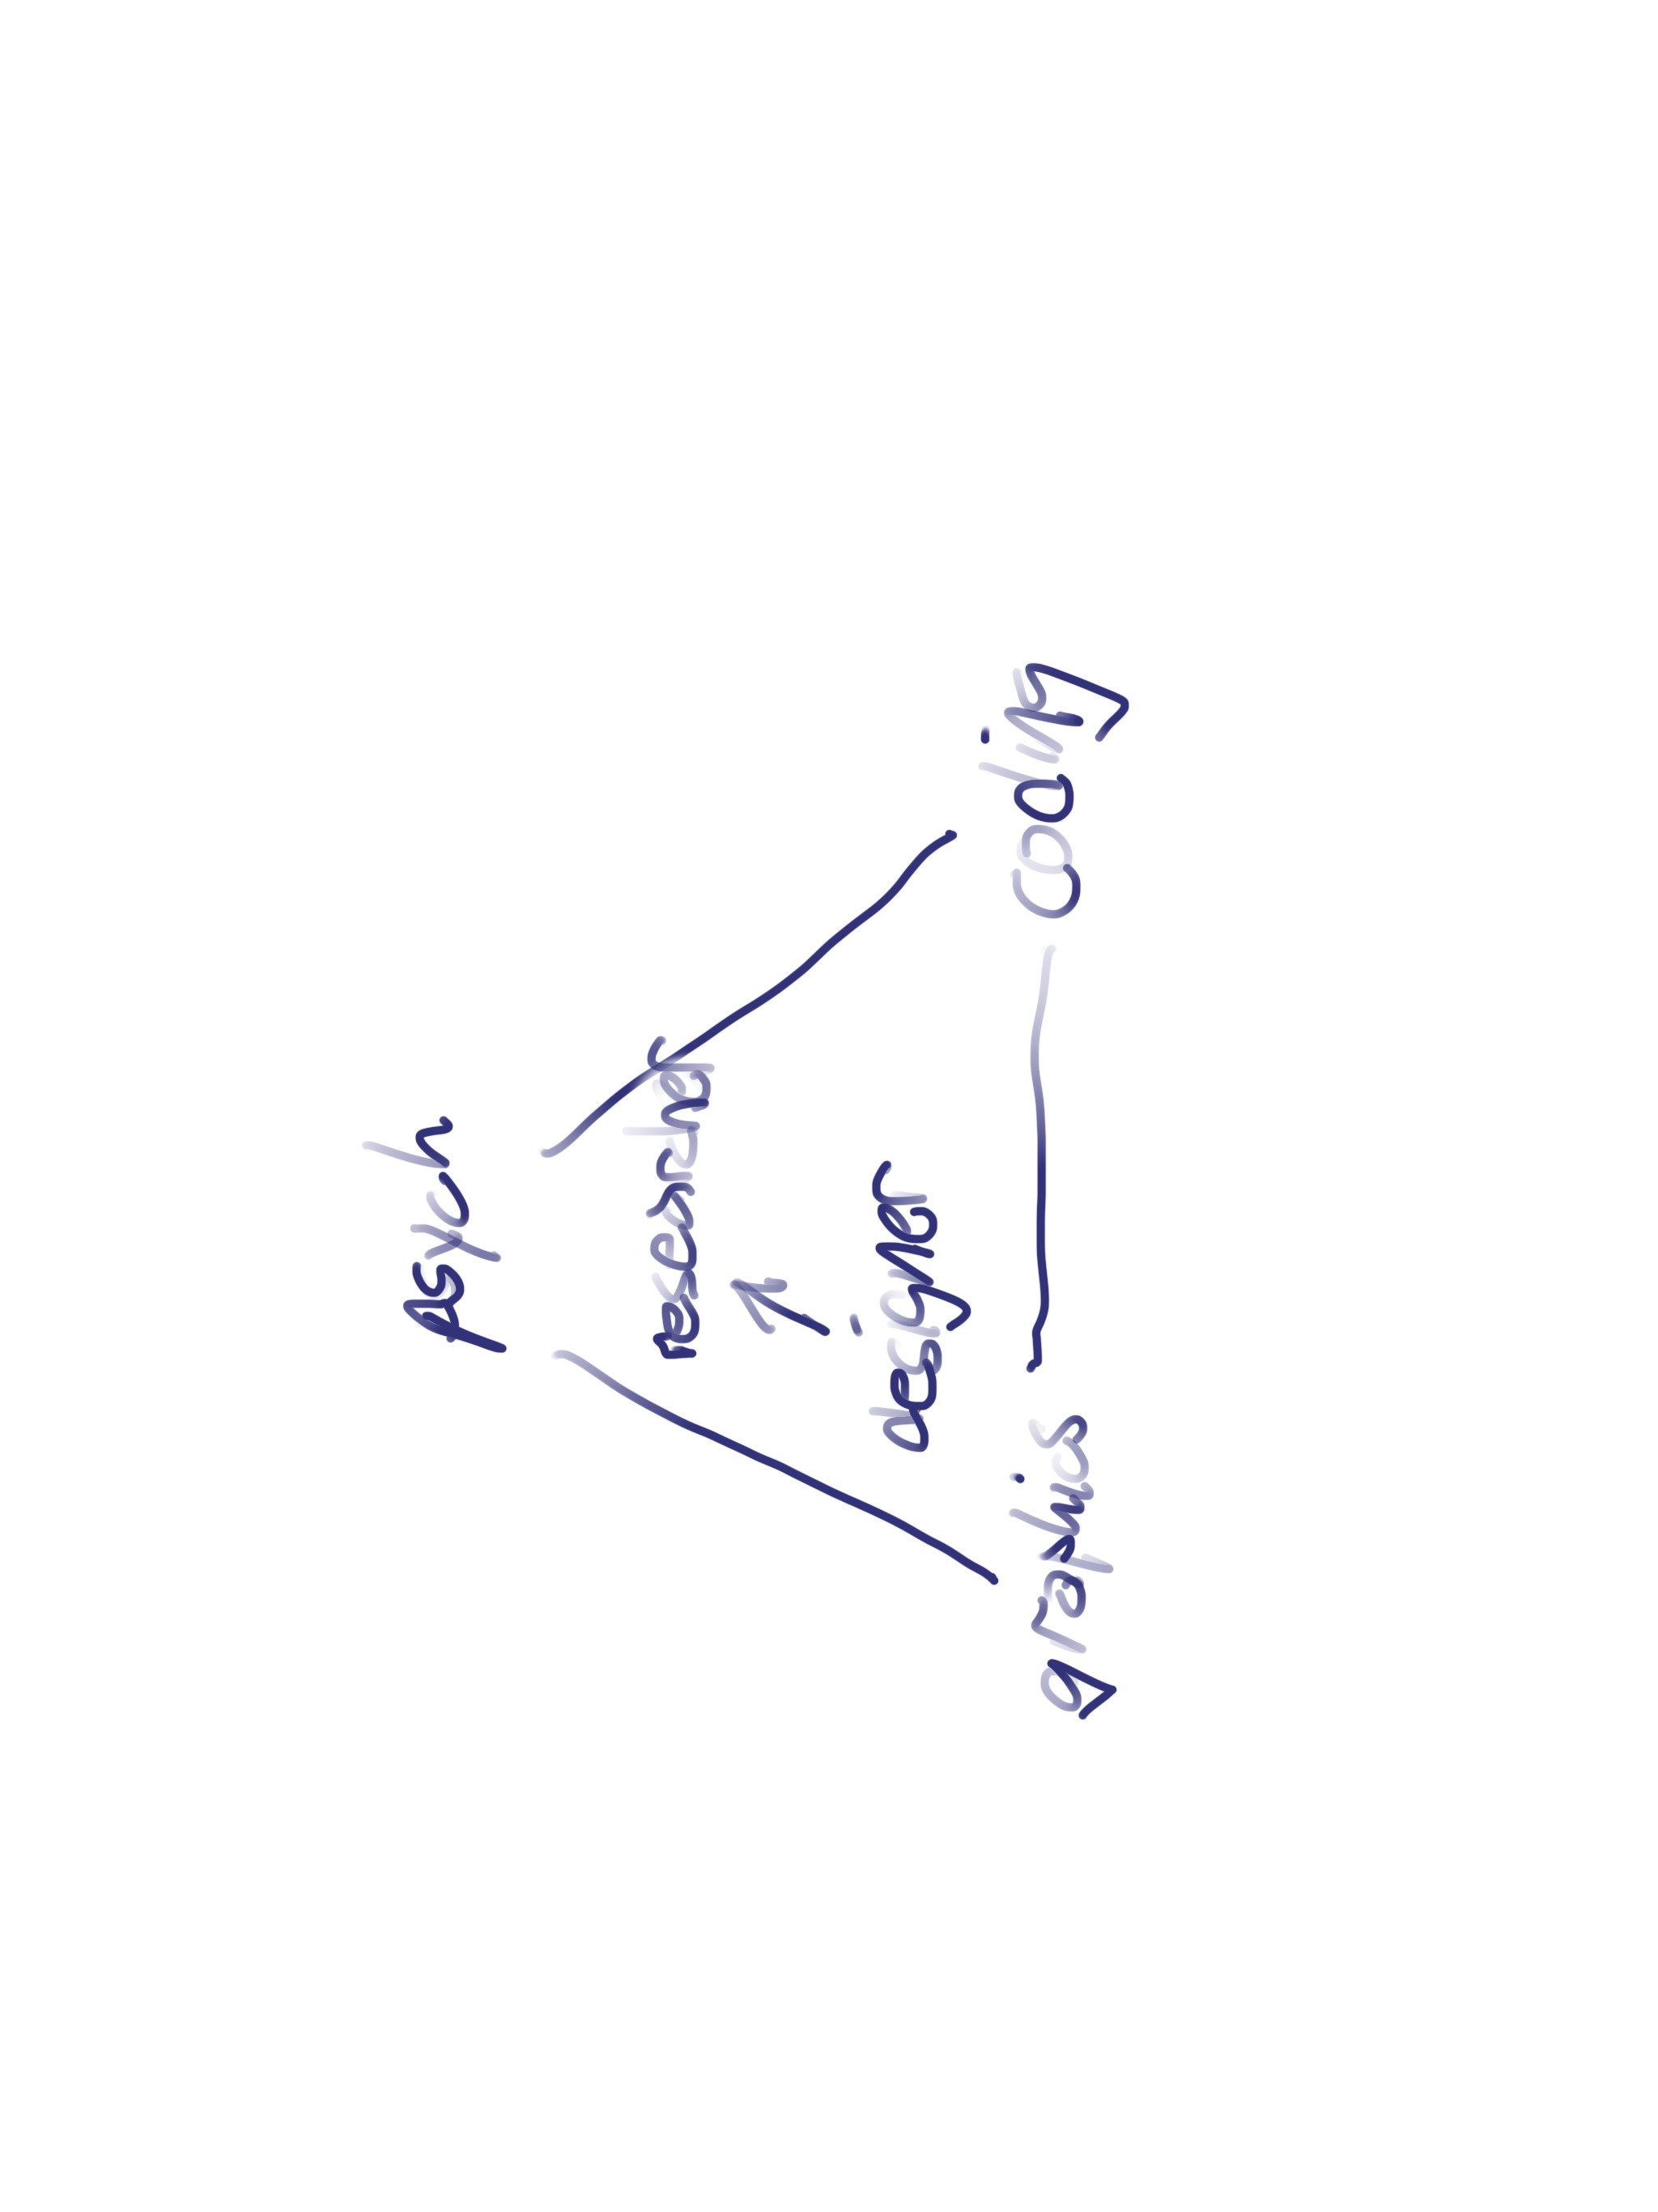 psych
researcher
designer
graphics
coding